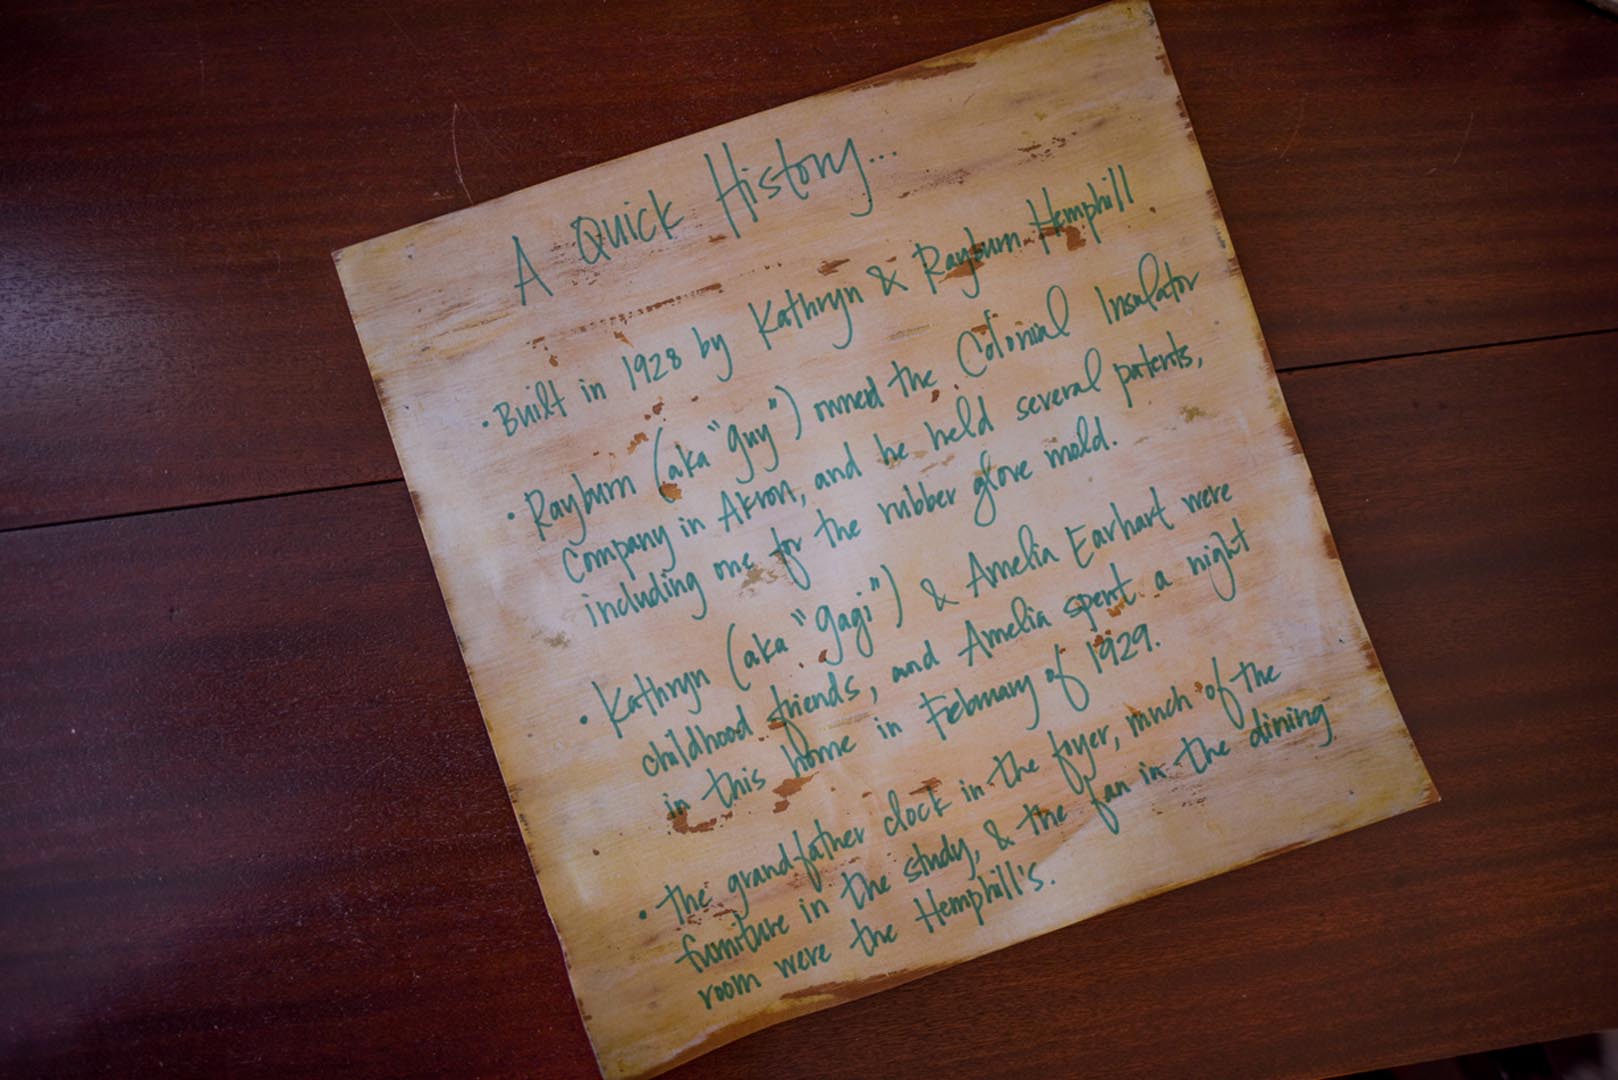 A Quick History...
• Built in 1928 by Kathryn & Rayburn Hemphill.
• Rayburn (aka "Guy") owned the Colonial Insulator
Company in Akron, and he held several patents,
including one for the rubber glove mold.
• Kathryn (aka "Gagi") & Amelia Earhart were
childhood friends, and Amelia spent a night
in this home in February of 1929.
• The grandfather clock in the foyer, much of the
furniture in the study, & the fan in the dining
room were the Hemphill's.